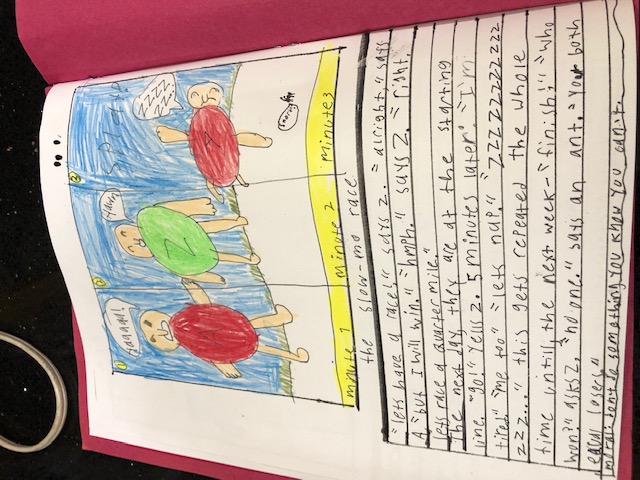 1 2 3
Yawn
minute 1 minute 2 minute 3
the slow-mo race
"lets have a race!" says Z. "alright," says
A "but I will win." "hmph." says Z. "right,
lets race a quarter mile."
the next day, they are at the starting
line. "go!" yells Z. 5 minutes later "I'm
tired" "me too" "lets nap." "ZZZZZZZZZZZZ
ZZZ..." this gets repeated the whole
time untill, the next week- "finish!" "who
won?" asks Z. "no one." says an ant. "You both
equal losers"
moral: dont do something you know you can't.